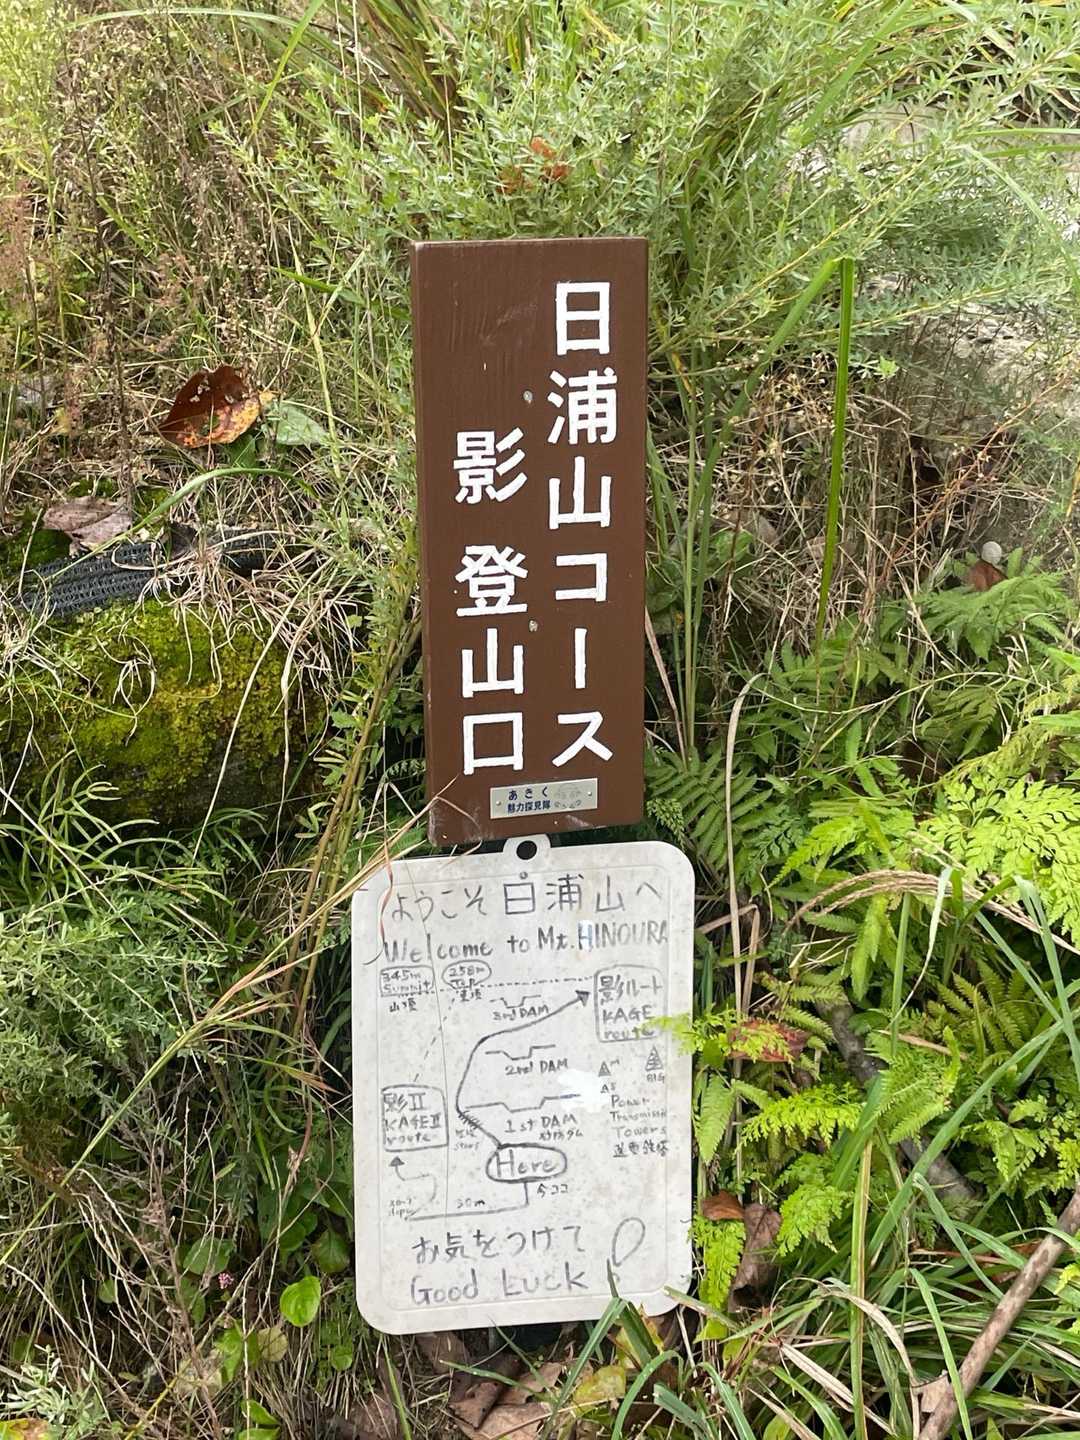 日浦山コース
影 登山口
あきく
魅力探見隊
ようこそ 日浦山へ
Welcome to Mt. HINOURA
345m
Summit
山頂
258m
Top
3rd DAM
影ルート
KAGE
route
2nd DAM
BIG
Power
Transmission
Towers
送電鉄塔
1st DAM
影II
KAGE II
route
Here
今ココ
30m
お気をつけて
Good Luck